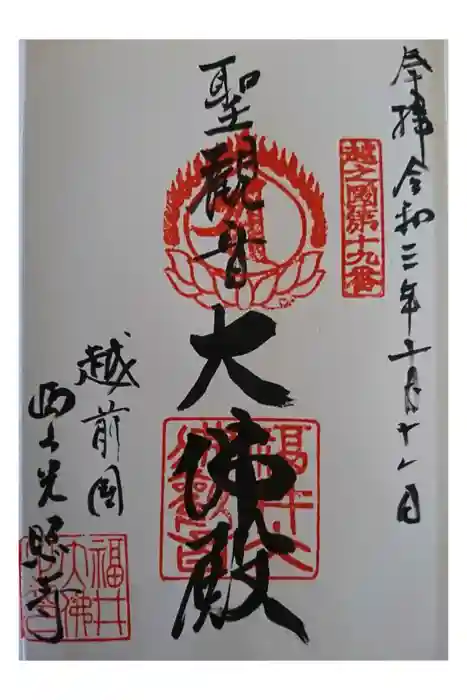 奉拝 令和三年十一月十八日
越之國第十九番
聖觀音
大佛殿
越前国
西山光照寺
福井大佛